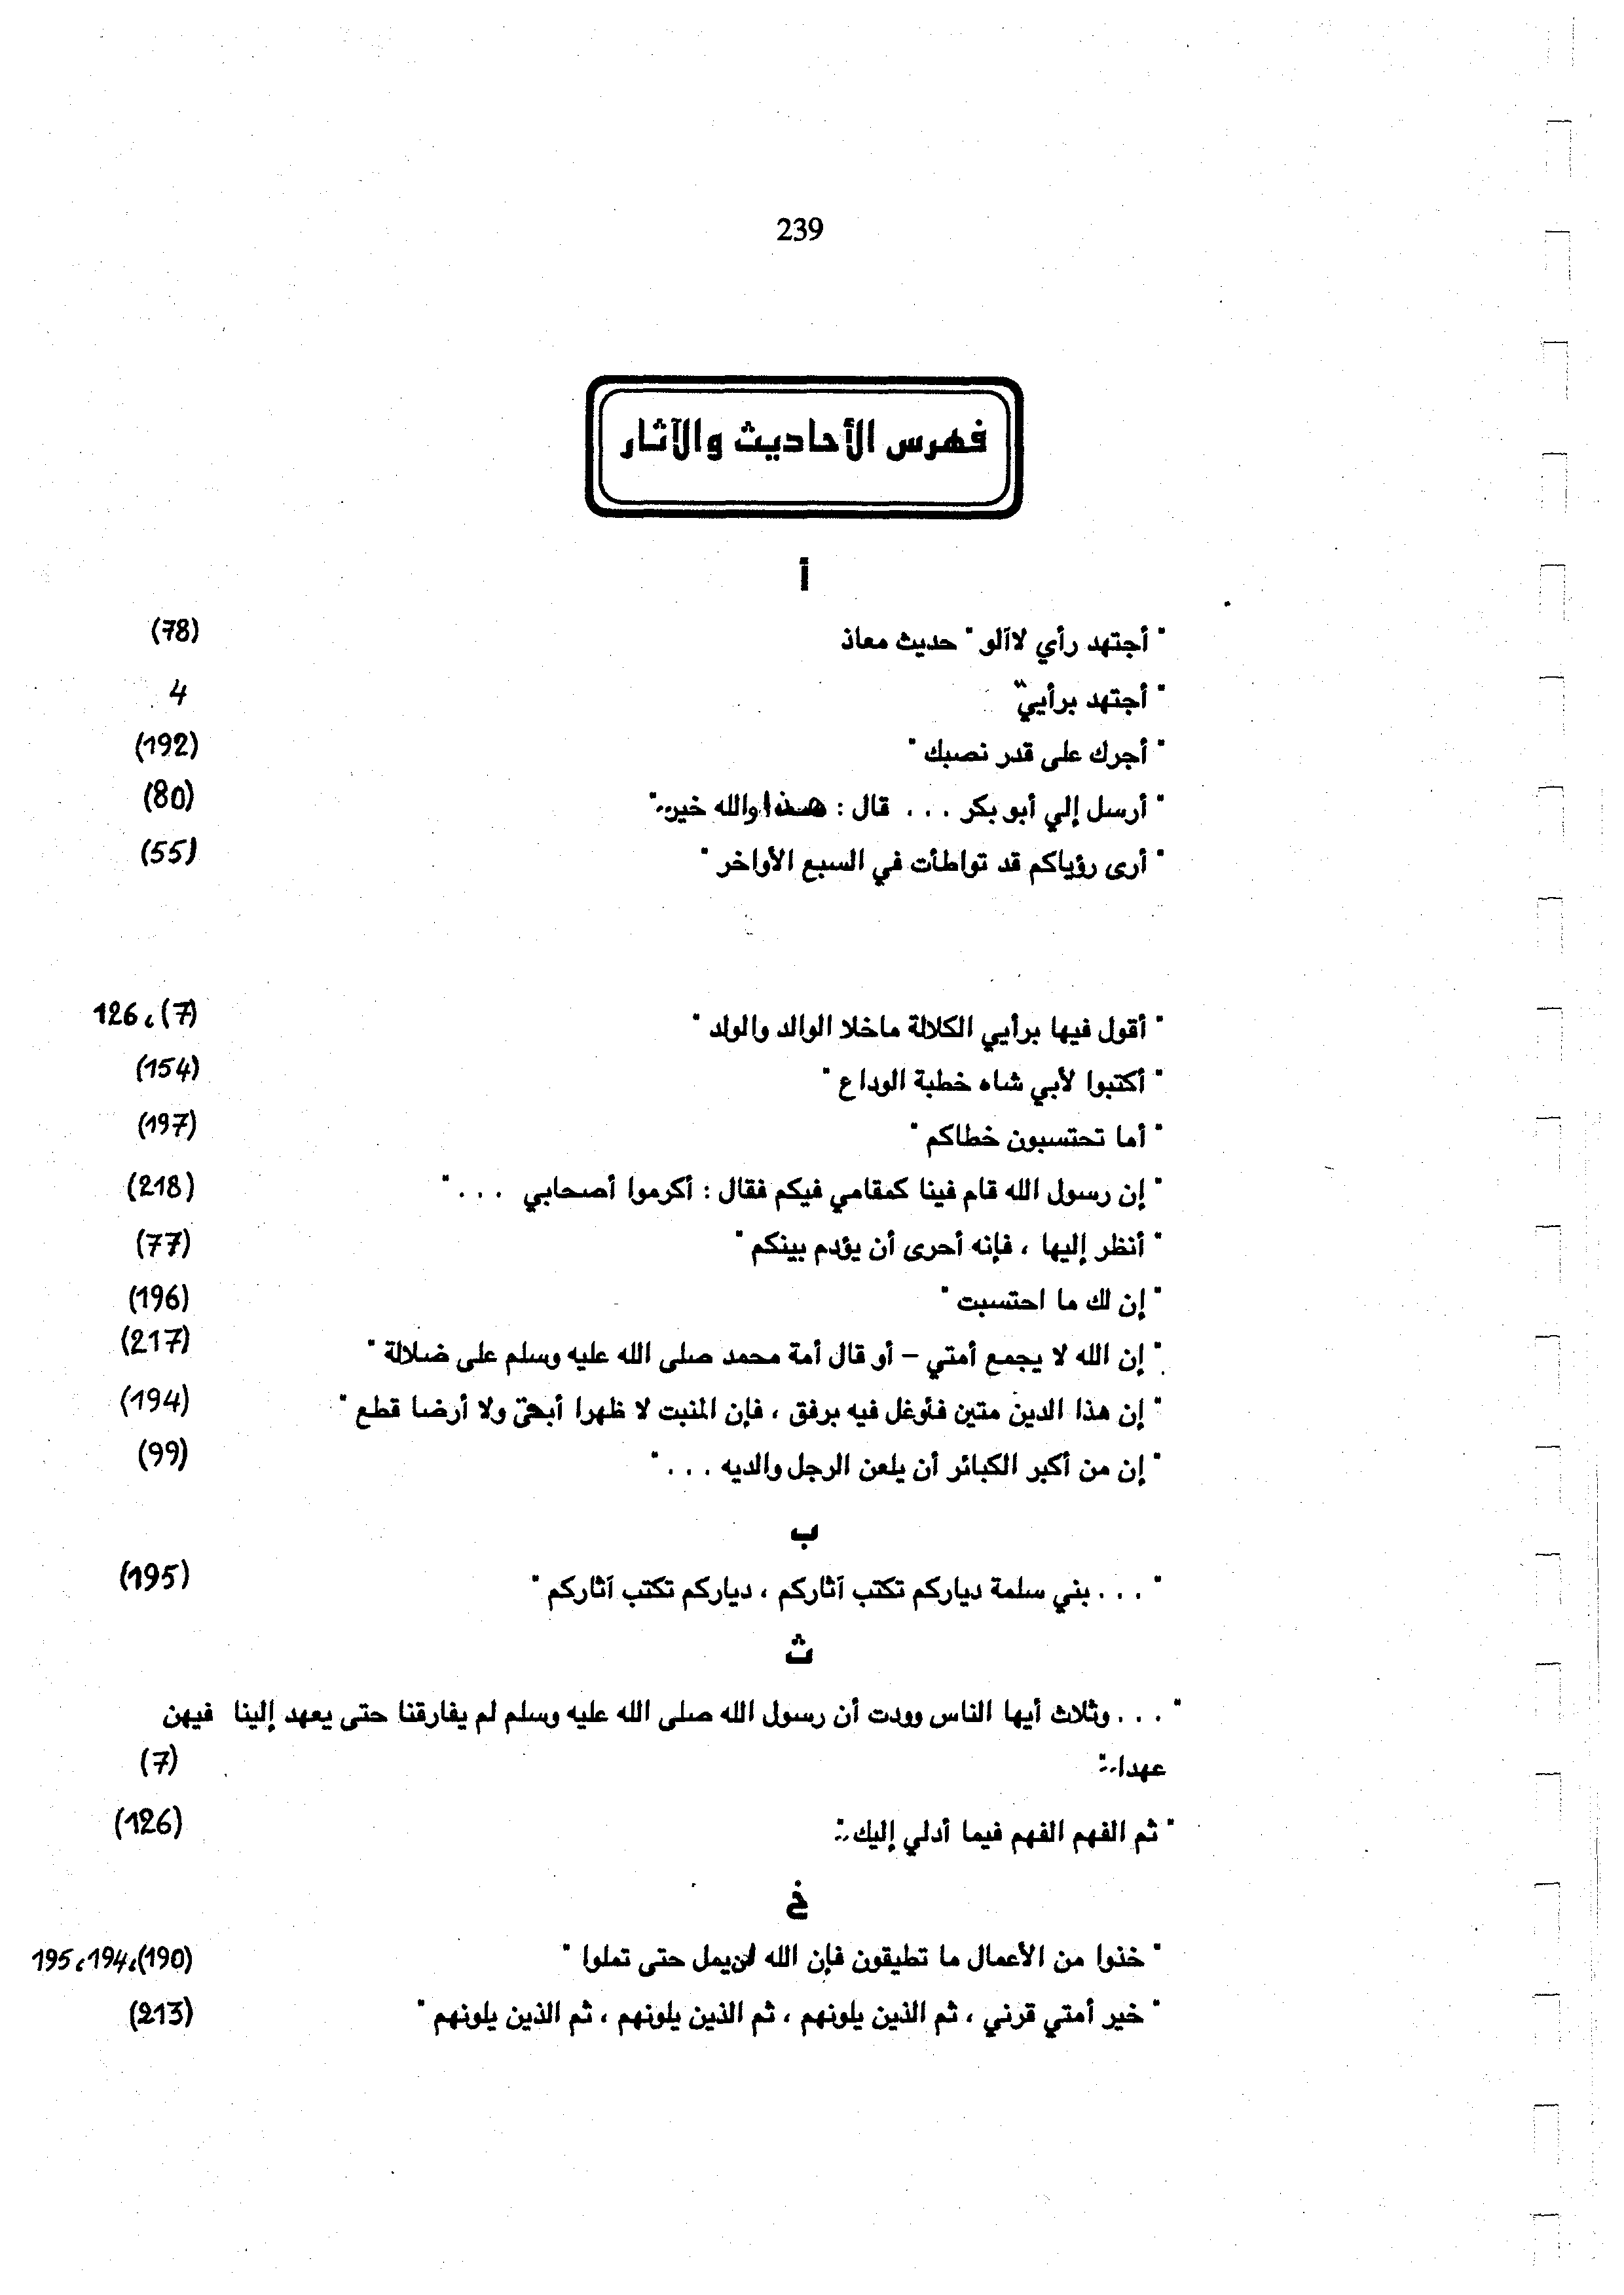 239
فهرس الأحاديث والآثار
أ
" أجتهد رأي لاآلو " حديث معاذ (78)
" أجتهد برأيي" 4
" أجرك على قدر نصبك " (192)
" أرسل إلي أبو بكر . . . قال : هذا والله خير.." (80)
" أرى رؤياكم قد تواطأت في السبع الأواخر " (55)
" أقول فيها برأيي الكلالة ماخلا الوالد والولد " (7)، 126
" أكتبوا لأبي شاه خطبة الوداع " (154)
" أما تحتسبون خطاكم " (197)
" إن رسول الله قام فينا كمقامي فيكم فقال : أكرموا أصحابي . . . " (218)
" أنظر إليها ، فإنه أحرى أن يؤدم بينكم " (77)
" إن لك ما احتسبت " (196)
" إن الله لا يجمع أمتي – أو قال أمة محمد صلى الله عليه وسلم على ضلالة " (217)
" إن هذا الدين متين فأوغل فيه برفق ، فإن المنبت لا ظهرا أبقى ولا أرضا قطع " (194)
" إن من أكبر الكبائر أن يلعن الرجل والديه . . . " (99)
ب
" . . . بني سلمة دياركم تكتب آثاركم ، دياركم تكتب آثاركم " (195)
ث
" . . . وثلاث أيها الناس وودت أن رسول الله صلى الله عليه وسلم لم يفارقنا حتى يعهد إلينا فيهن
عهدا.." (7)
" ثم الفهم الفهم فيما أدلي إليك.." (126)
خ
" خذوا من الأعمال ما تطيقون فإن الله لن يمل حتى تملوا " (190)، 194، 195
" خير أمتي قرني ، ثم الذين يلونهم ، ثم الذين يلونهم ، ثم الذين يلونهم " (213)